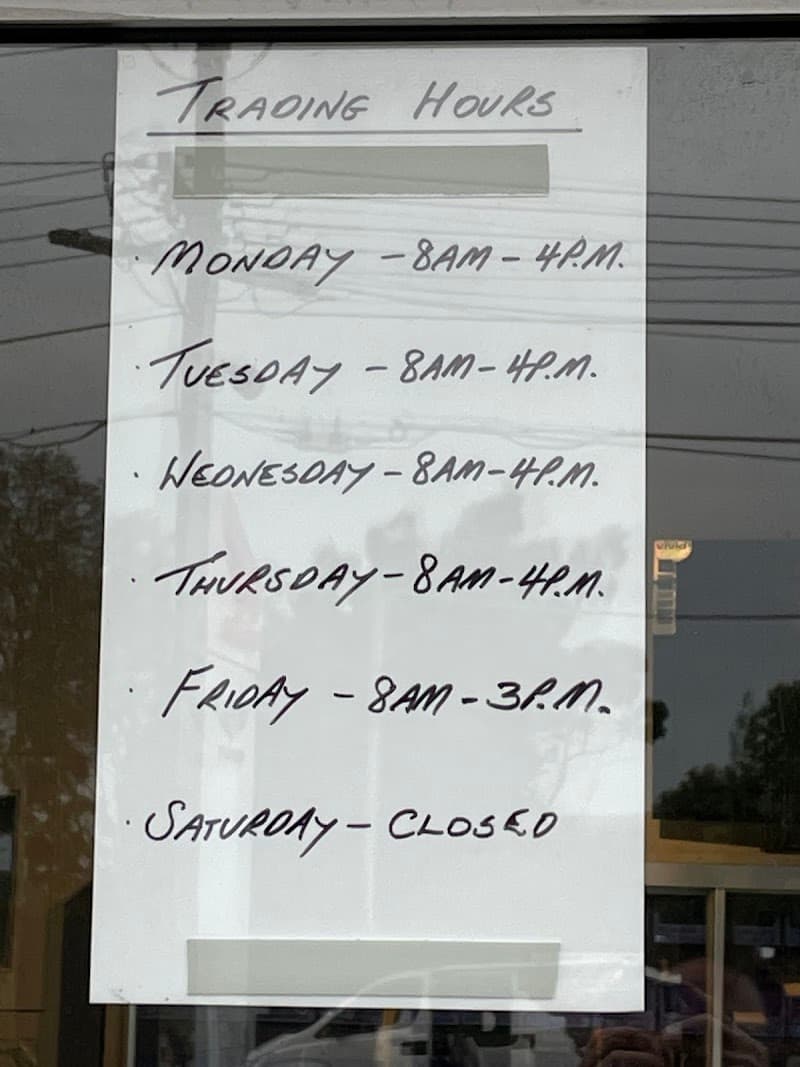 TRADING HOURS
· MONDAY - 8AM - 4P.M.
· TUESDAY - 8AM - 4P.M.
· WEDNESDAY - 8AM - 4P.M.
· THURSDAY - 8AM - 4P.M.
· FRIDAY - 8AM - 3P.M.
· SATURDAY - CLOSED